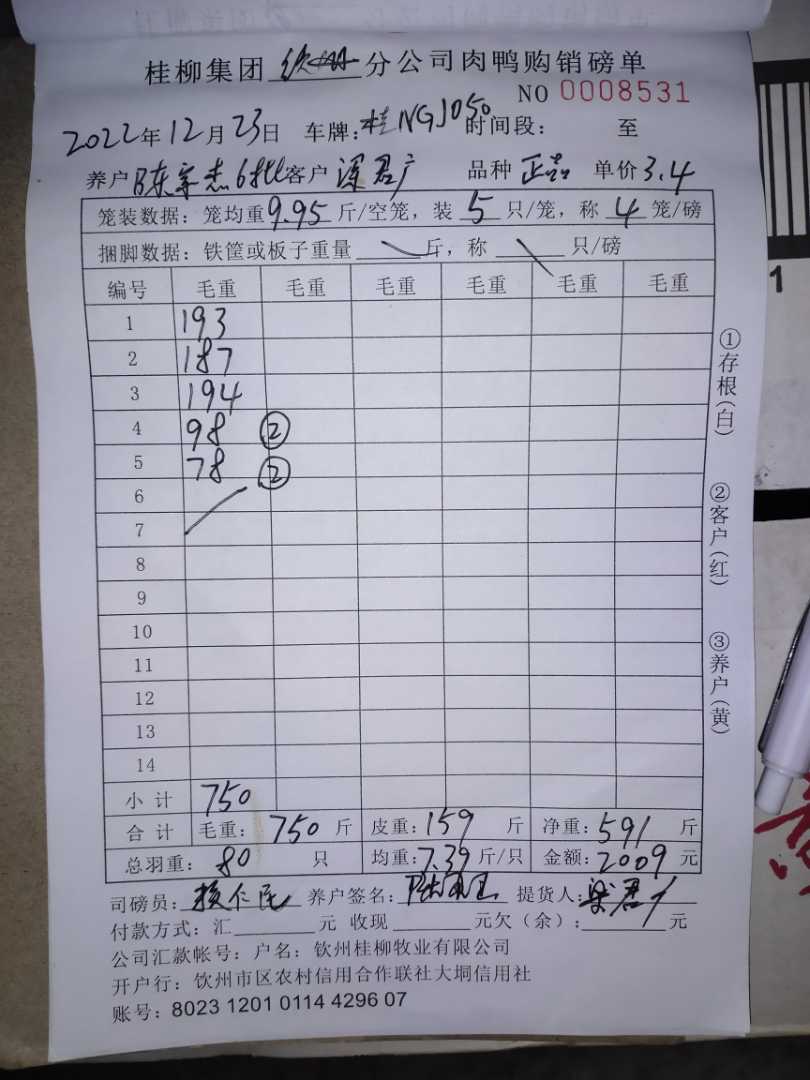 桂柳集团 钦州 分公司肉鸭购销磅单
NO 0008531
2022年12月23日 车牌:桂NGJ050 时间段: 至
养户 陈宗杰6批 客户 梁君广 品种 正品 单价3.4
笼装数据:笼均重9.95斤/空笼,装 5 只/笼,称 4 笼/磅
捆脚数据:铁筐或板子重量 斤,称 只/磅
编号 毛重 毛重 毛重 毛重 毛重 毛重
1 193
2 187
3 194
4 98 ②
5 78 ②
6
7
8
9
10
11
12
13
14
小计 750
合计 毛重:750斤 皮重:159斤 净重:591斤
总羽重:80只 均重:7.39斤/只 金额:2009元
司磅员: 养户签名: 提货人:梁君广
付款方式:汇 元 收现 元欠(余): 元
公司汇款帐号:户名:钦州桂柳牧业有限公司
开户行:钦州市区农村信用合作联社大垌信用社
账号:8023 1201 0114 4296 07
①存根(白)
②客户(红)
③养户(黄)
1